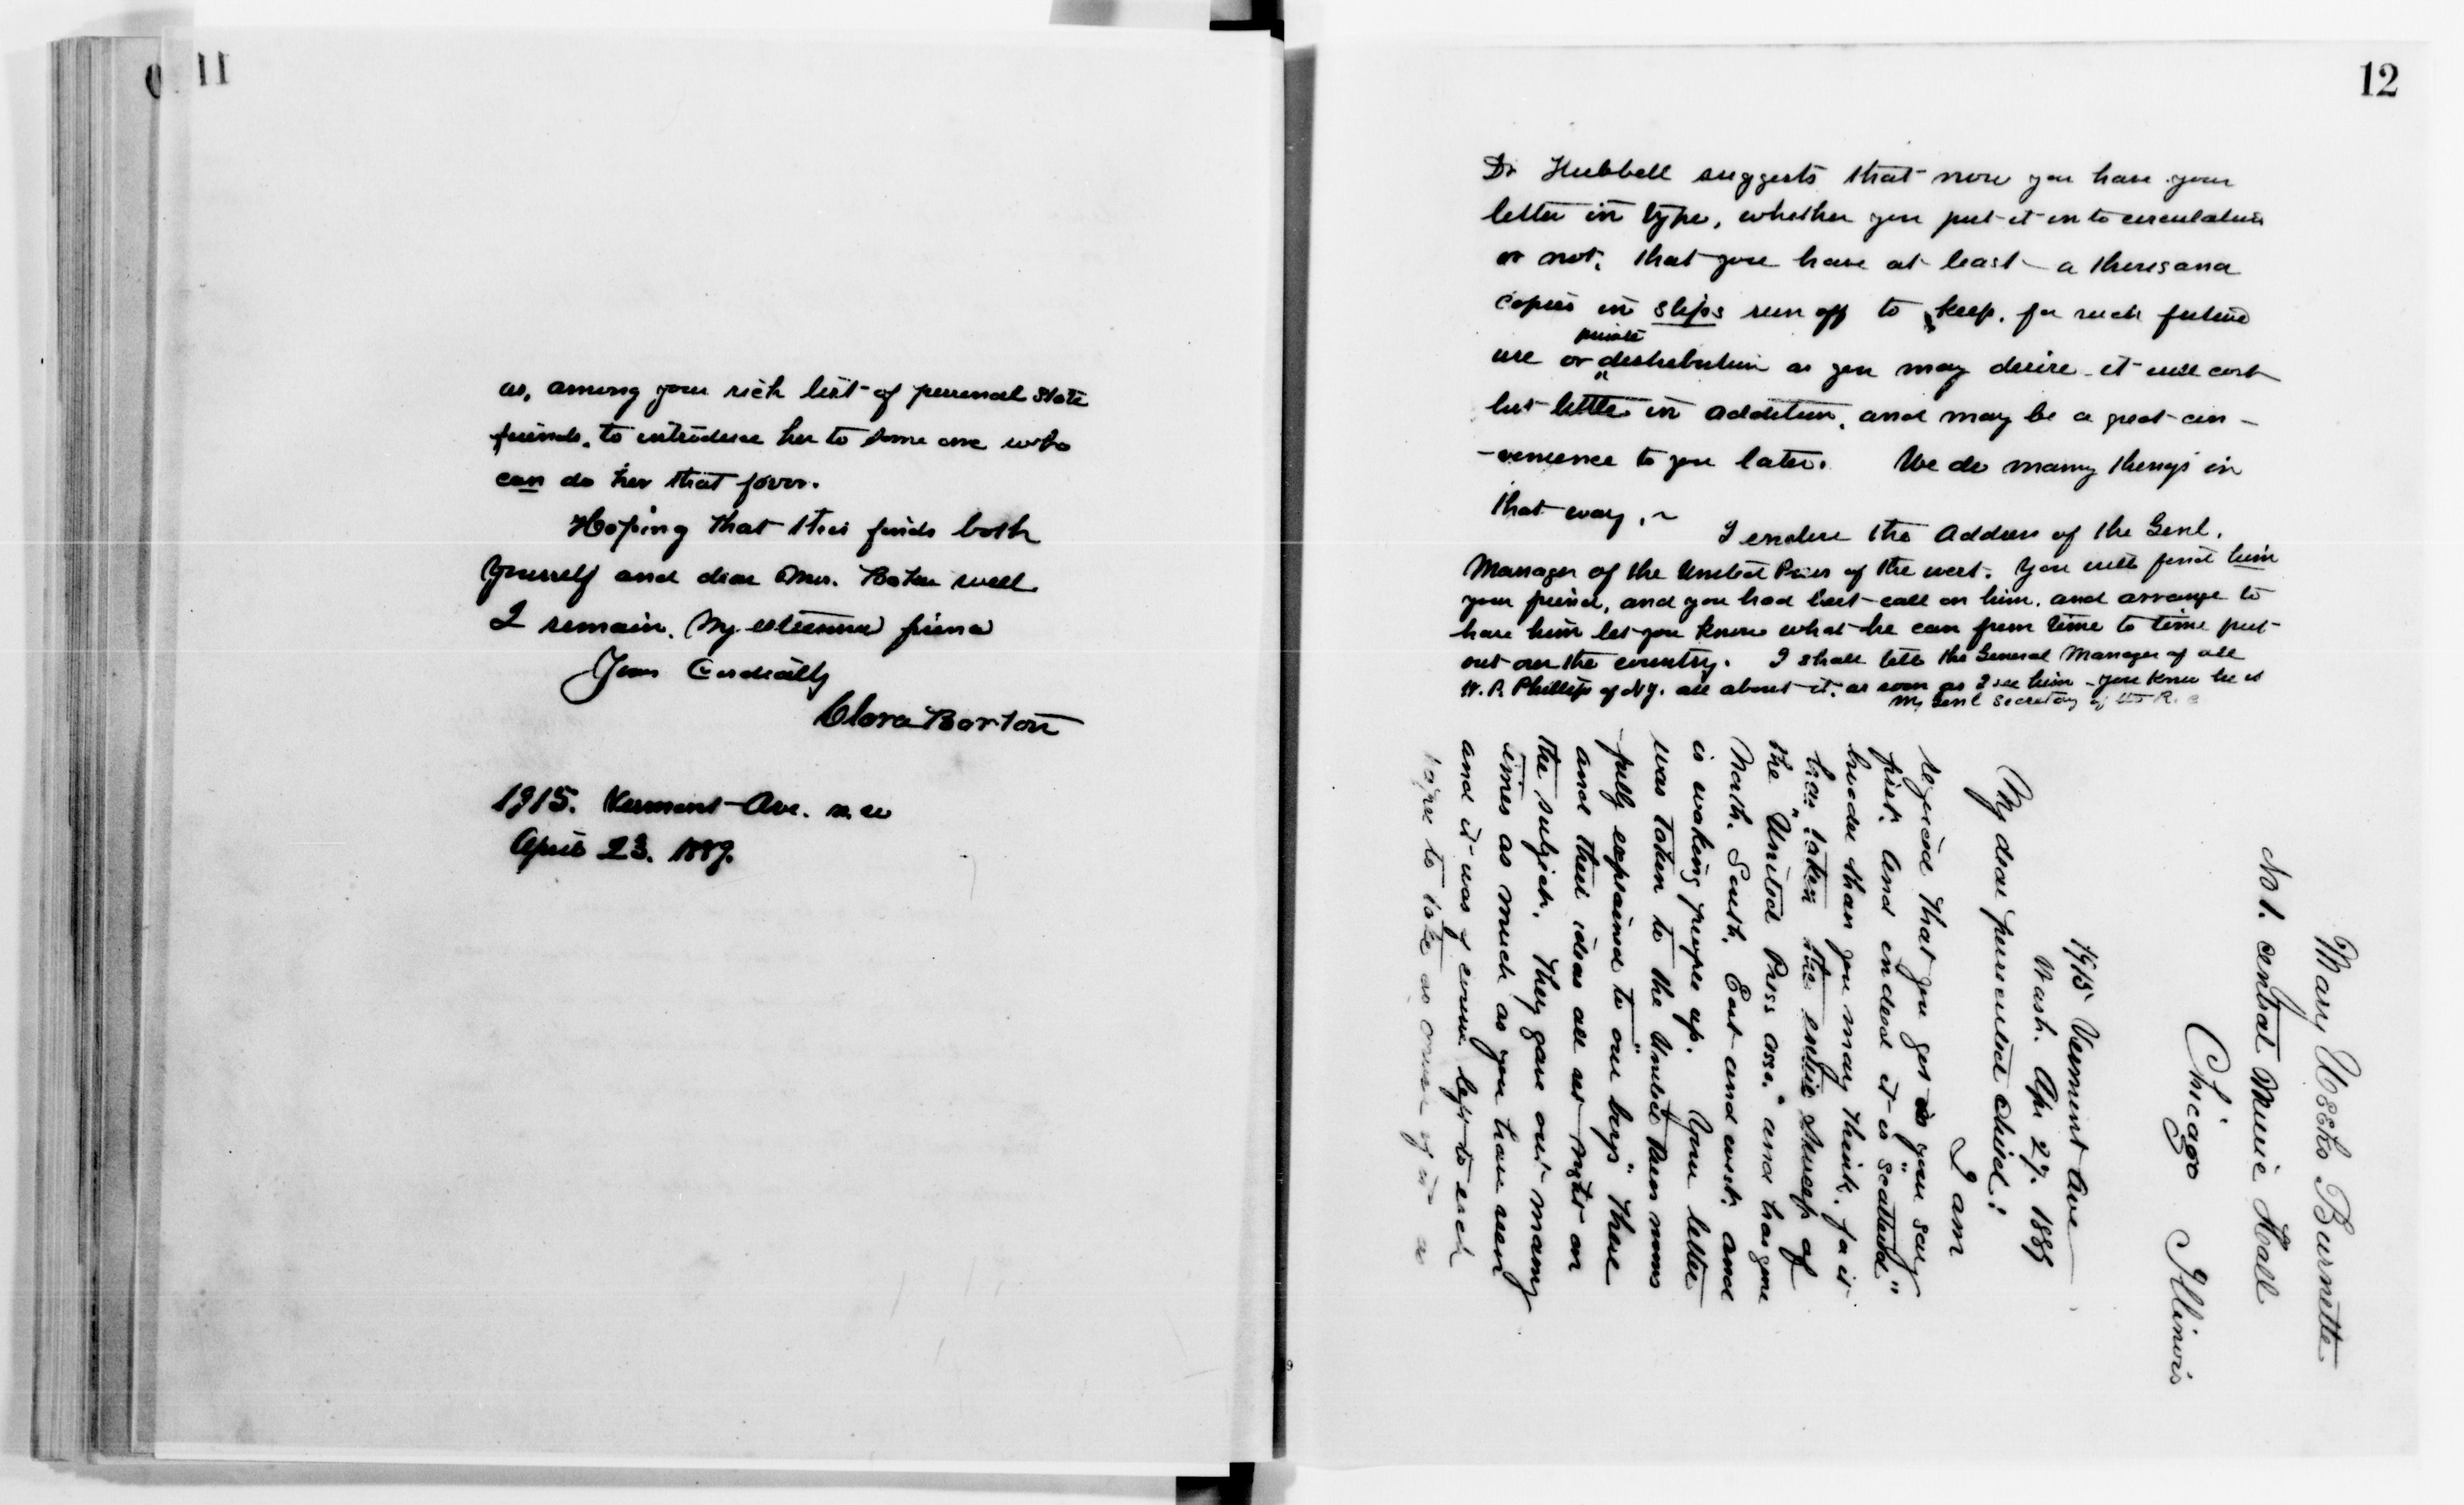 11
as, among your rich list of personal State
friends, to introduce her to some one who
can do her that favor.
Hoping that this finds both
yourself and dear Mrs. Baker well
I remain, My esteemed friend
Yours Cordially
Clara Barton
1915. Vermont Ave. n.w
April 23. 1889.
12
Dr Hubbell suggests that now you have your
letter in type, whether you put it in to circulation
or not, that you have at least a thousand
copies in slips run off to keep, for such future
use or private distribution as you may desire - it will cost
but little in addition, and may be a great con-
-venience to you later. We do many things in
that way. ~ I enclose the Address of the Genl.
Manager of the United Press of the west. You will find him
your friend, and you had best call on him, and arrange to
have him let you know what he can from time to time put
out over the country. I shall tell the General Manager of all
W. P. Phillips of N.Y. all about it, as soon as I see him - you know he is
my Genl Secretary of the R. C
Mary Weeks Burnette
No 1. Central Music Hall
Chicago Illinois
1915 Vermont Ave
Wash. Apr 27. 1889
My dear persecuted child:
I am
rejoiced that you get in your say
first. And indeed it is "scattered"
broader than you may think, for it
has "taken the entire sweep of
the "United Press Asso." and has gone
North. South. East and west. and
is waking people up. Your letter
was taken to the United Press rooms
fully explained to "our boys" there
and their ideas all set right on
the subject. They gave out many
times as much as you have seen
and it was of course left to each
paper to take as much of it as